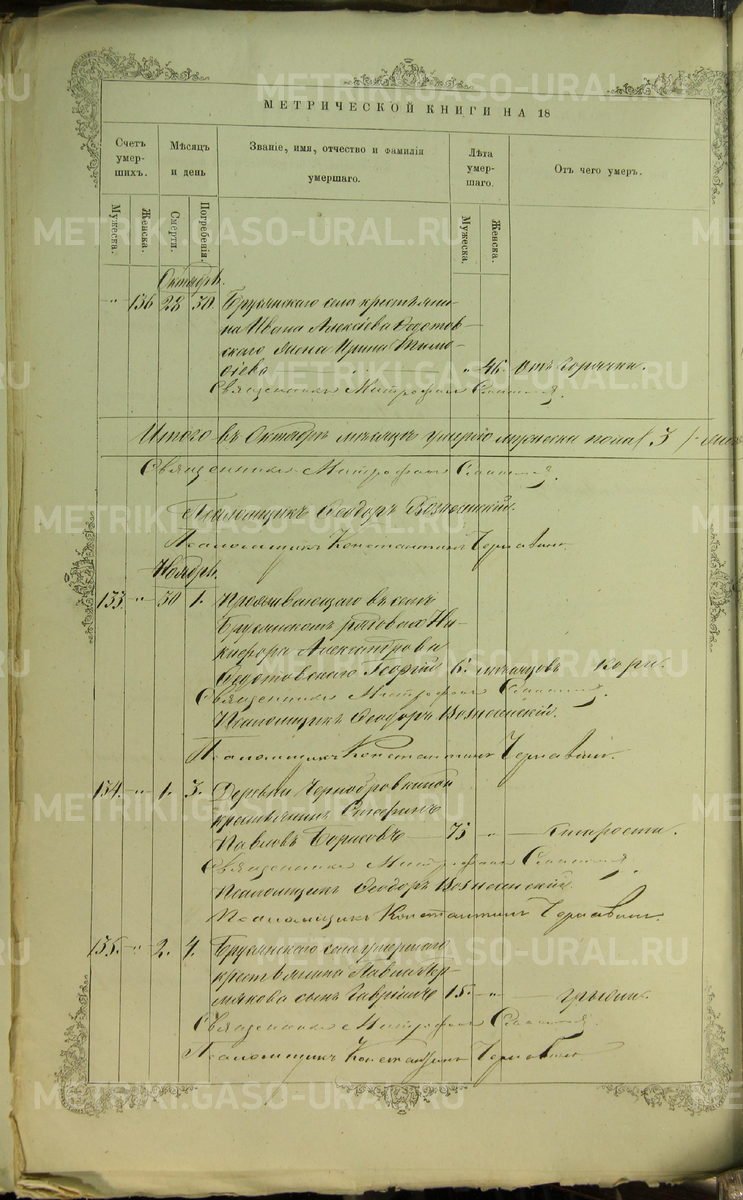 МЕТРИЧЕСКОЙ КНИГИ НА 18
Счетъ умер- шихъ.
Мѣсяцъ и день
Званіе, имя, отчество и фамилія умершаго.
Лѣта умер- шаго.
Отъ чего умеръ.
Мужеска.
Женска.
Смерти.
Погребенія.
Мужеска.
Женска.
Октябрь.
" 136 28 30. Бруснянскаго села крестьяни-
на Ивана Алексіева Ѳедотов-
скаго жена Ирина Тимо-
ѳіева " 46. отъ горячки.
Священникъ Митрофанъ
Итого въ Октябрѣ мѣсяцѣ умерло мужеска пола (3)
Священникъ Митрофанъ
Псаломщикъ Ѳеодоръ Вознесенскій.
Псаломщикъ Константинъ Чернавинъ.
Ноябрь.
153. " 30 1. Проживающаго въ селѣ
Александрова
Ѳедотовскаго Георгій 6. мѣсяцовъ кори.
Священникъ Митрофанъ
Псаломщикъ Ѳеодоръ Вознесенскій.
Псаломщикъ Константинъ Чернавинъ.
154. " 1. 3. Деревни Чернобровкиной
крестьянинъ
Павловъ Борисовъ 75 " старости.
Священникъ Митрофанъ
Псаломщикъ Ѳеодоръ Вознесенскій.
Псаломщикъ Константинъ Чернавинъ.
155. " 2. 4. села умершаго
крестьянина Павла Чер-
мякова сынъ Гавріилъ 15. "
Священникъ Митрофанъ
Псаломщикъ Константинъ Чернавинъ
METRIKI.GASO-URAL.RU